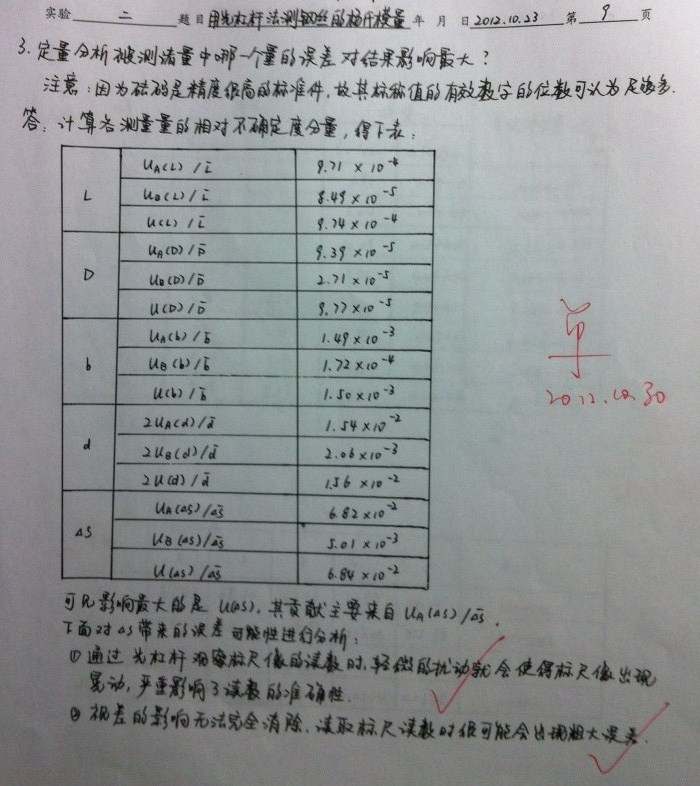 实验 二 题目 用光杠杆法测钢丝的杨氏模量 年 月 日 2012.10.23 第 9 页
3. 定量分析被测诸量中哪一个量的误差对结果影响最大?
注意:因为砝码是精度很高的标准件,故其标称值的有效数字的位数可认为足够多.
答:计算各测量量的相对不确定度分量,得下表:
L
UA(L)/L̄ 9.71×10⁻⁴
UB(L)/L̄ 8.49×10⁻⁵
U(L)/L̄ 9.74×10⁻⁴
D
UA(D)/D̄ 9.39×10⁻⁵
UB(D)/D̄ 2.71×10⁻⁵
U(D)/D̄ 9.77×10⁻⁵
b
UA(b)/b̄ 1.49×10⁻³
UB(b)/b̄ 1.72×10⁻⁴
U(b)/b̄ 1.50×10⁻³
d
2UA(d)/d̄ 1.54×10⁻²
2UB(d)/d̄ 2.06×10⁻³
2U(d)/d̄ 1.56×10⁻²
ΔS
UA(ΔS)/ΔS̄ 6.82×10⁻²
UB(ΔS)/ΔS̄ 5.01×10⁻³
U(ΔS)/ΔS̄ 6.84×10⁻²
可见影响最大的是 U(ΔS),其贡献主要来自 UA(ΔS)/ΔS̄.
下面对ΔS带来的误差可能性进行分析:
① 通过光杠杆观察标尺像的读数时,轻微的扰动就会使得标尺像出现
晃动,严重影响了读数的准确性.
② 视差的影响无法完全消除,读取标尺读数时很可能会出现粗大误差.
2012.10.30